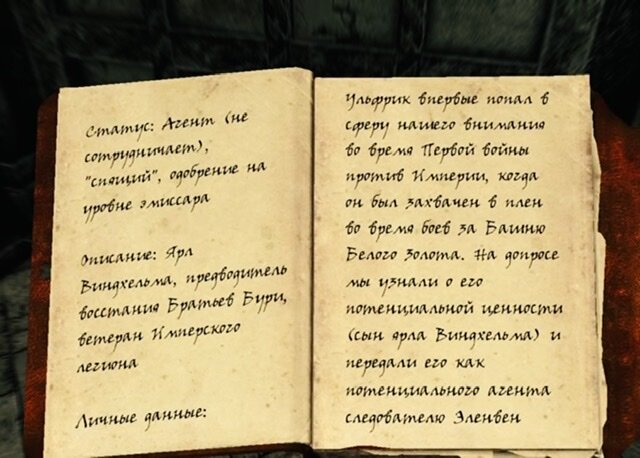 Статус: Агент (не
сотрудничает),
"спящий", одобрение на
уровне эмиссара
Описание: Ярл
Виндхельма, предводитель
восстания Братьев Бури,
ветеран Имперского
легиона
Личные данные:
Ульфрик впервые попал в
сферу нашего внимания
во время Первой войны
против Империи, когда
он был захвачен в плен
во время боев за Башню
Белого Золота. На допросе
мы узнали о его
потенциальной ценности
(сын ярла Виндхельма) и
передали его как
потенциального агента
следователю Эленвен